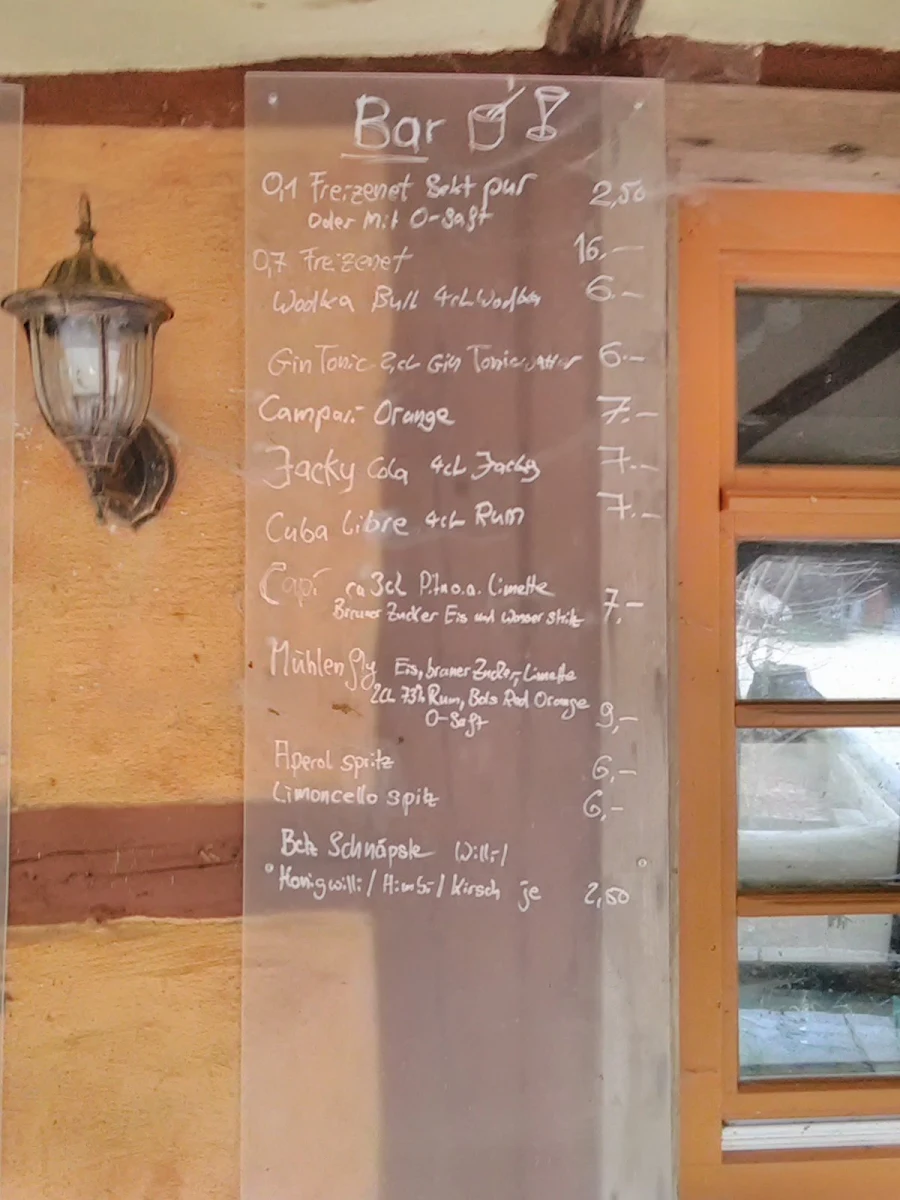 Bar
0,1 Freizenet Sekt pur 2,50
oder mit O-Saft
0,7 Freizenet 16.-
Wodka Bull 4cl Wodka 6.-
Gin Tonic 2cl Gin Tonicwatter 6.-
Campari Orange 7.-
Jacky Cola 4cl Jacky 7.-
Cuba Libre 4cl Rum 7.-
Capi ca 3cl Limette
Brauner Zucker Eis und Wasser 7,-
Mühlen Fly Eis, brauner Zucker, Limette
2cl 73% Rum, Bols Red Orange
O-Saft 9,-
Aperol spritz 6,-
Limoncello spitz 6,-
Schnäpsle Willi/
Honigwilli/Himbi/Kirsch je 2,50